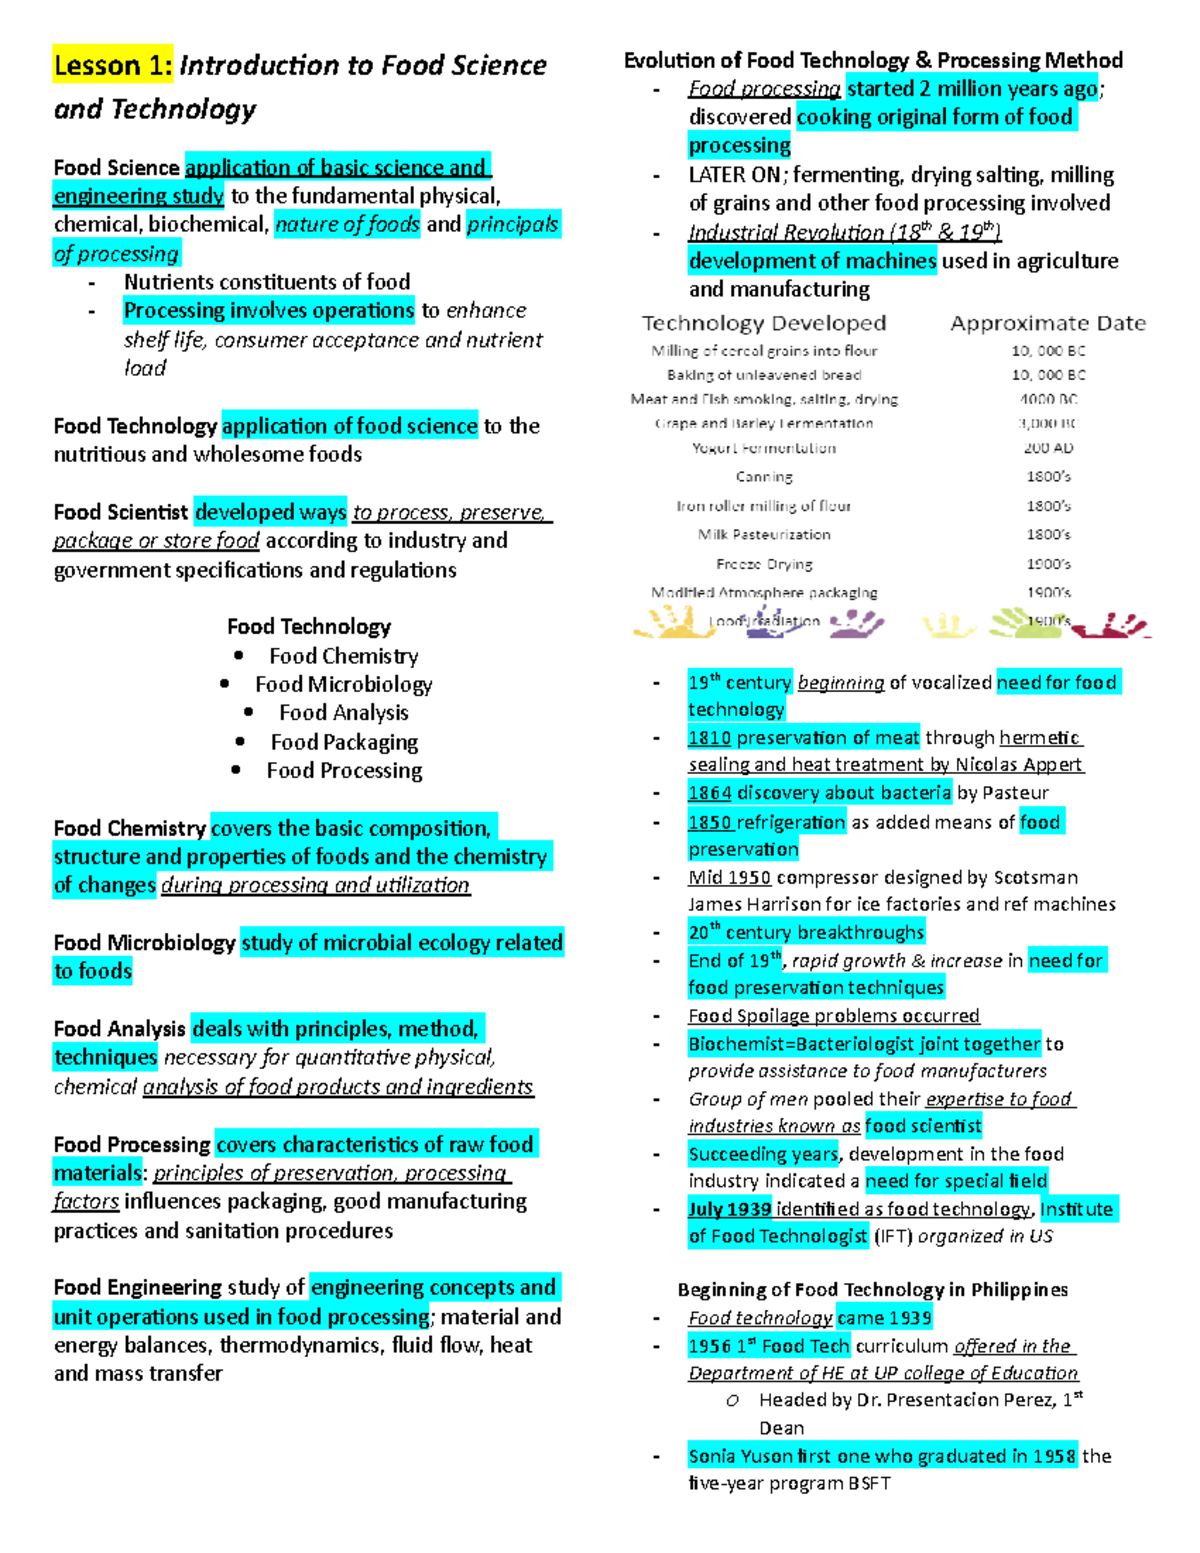 Lesson 1: Introduction to Food Science
and Technology
Food Science application of basic science and
engineering study to the fundamental physical,
chemical, biochemical, nature of foods and principals
of processing
- Nutrients constituents of food
- Processing involves operations to enhance
shelf life, consumer acceptance and nutrient
load
Food Technology application of food science to the
nutritious and wholesome foods
Food Scientist developed ways to process, preserve,
package or store food according to industry and
government specifications and regulations
Food Technology
• Food Chemistry
• Food Microbiology
• Food Analysis
• Food Packaging
• Food Processing
Food Chemistry covers the basic composition,
structure and properties of foods and the chemistry
of changes during processing and utilization
Food Microbiology study of microbial ecology related
to foods
Food Analysis deals with principles, method,
techniques necessary for quantitative physical,
chemical analysis of food products and ingredients
Food Processing covers characteristics of raw food
materials: principles of preservation, processing
factors influences packaging, good manufacturing
practices and sanitation procedures
Food Engineering study of engineering concepts and
unit operations used in food processing; material and
energy balances, thermodynamics, fluid flow, heat
and mass transfer
Evolution of Food Technology & Processing Method
- Food processing started 2 million years ago;
discovered cooking original form of food
processing
- LATER ON; fermenting, drying salting, milling
of grains and other food processing involved
- Industrial Revolution (18th & 19th)
development of machines used in agriculture
and manufacturing
Technology Developed Approximate Date
Milling of cereal grains into flour 10, 000 BC
Baking of unleavened bread 10, 000 BC
Meat and Fish smoking, salting, drying 4000 BC
Grape and Barley Fermentation 3,000 BC
Yogurt Fermentation 200 AD
Canning 1800's
Iron roller milling of flour 1800's
Milk Pasteurization 1800's
Freeze Drying 1900's
Modified Atmosphere packaging 1900's
Food Irradiation 1900's
- 19th century beginning of vocalized need for food
technology
- 1810 preservation of meat through hermetic
sealing and heat treatment by Nicolas Appert
- 1864 discovery about bacteria by Pasteur
- 1850 refrigeration as added means of food
preservation
- Mid 1950 compressor designed by Scotsman
James Harrison for ice factories and ref machines
- 20th century breakthroughs
- End of 19th, rapid growth & increase in need for
food preservation techniques
- Food Spoilage problems occurred
- Biochemist=Bacteriologist joint together to
provide assistance to food manufacturers
- Group of men pooled their expertise to food
industries known as food scientist
- Succeeding years, development in the food
industry indicated a need for special field
- July 1939 identified as food technology, Institute
of Food Technologist (IFT) organized in US
Beginning of Food Technology in Philippines
- Food technology came 1939
- 1956 1st Food Tech curriculum offered in the
Department of HE at UP college of Education
O Headed by Dr. Presentacion Perez, 1st
Dean
- Sonia Yuson first one who graduated in 1958 the
five-year program BSFT